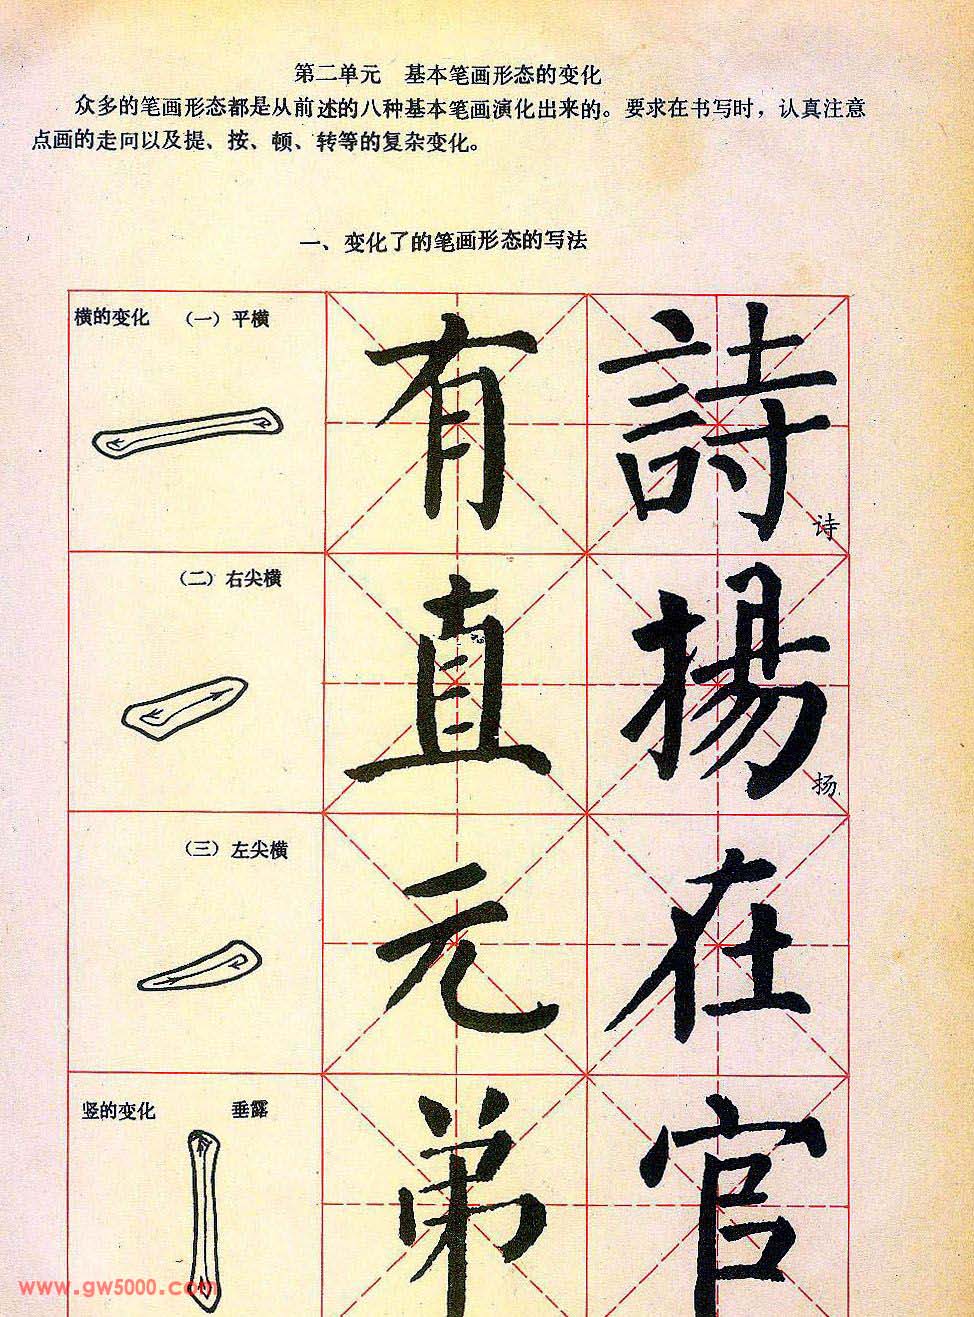 第二单元 基本笔画形态的变化
众多的笔画形态都是从前述的八种基本笔画演化出来的。要求在书写时，认真注意
点画的走向以及提、按、顿、转等的复杂变化。
一、变化了的笔画形态的写法
横的变化 （一）平横
有 詩
诗
（二）右尖横
直 揚
扬
（三）左尖横
元 在
竖的变化 垂露
弟 官
www.gw5000.com